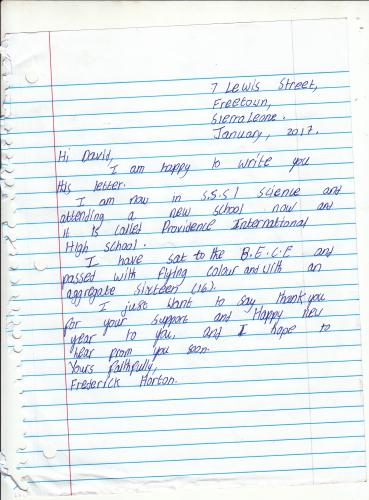 7 Lewis Street,
Freetown,
Sierra Leone.
January, 2017.
Hi David,
I am happy to write you
this letter.
I am now in S.S.S 1 science and
attending a new school now and
it is called Providence International
High school.
I have sat to the B.E.C.E and
passed with flying colour and with an
aggregate sixteen (16).
I just want to say thank you
for your support and Happy new
year to you, and I hope to
hear from you soon.
Yours faithfully,
Frederick Horton.